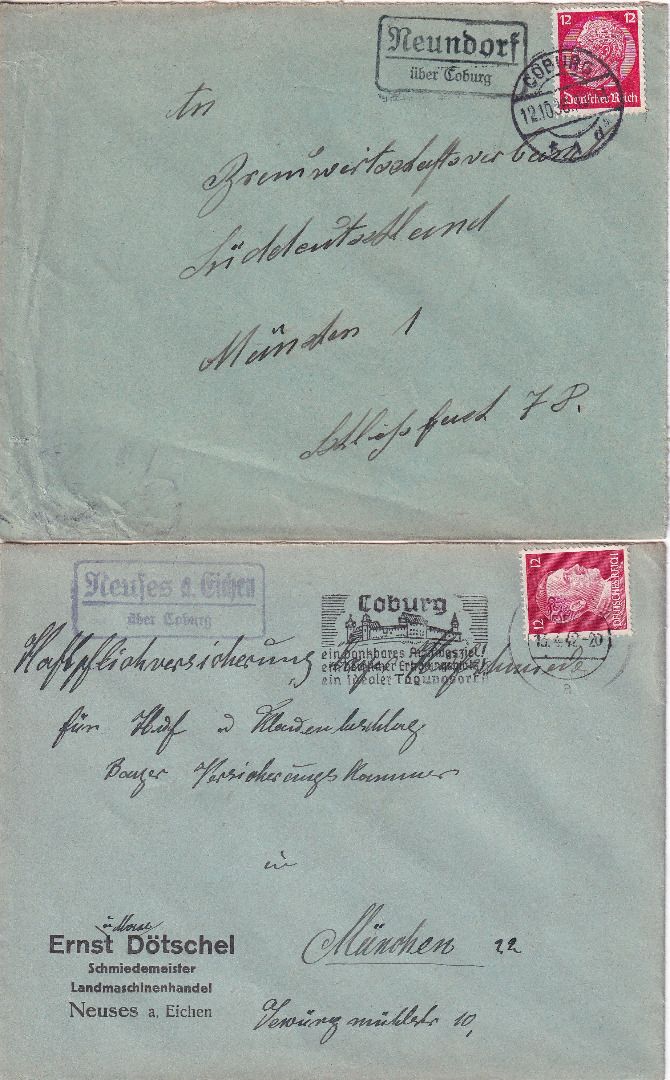 Neundorf
über Coburg
12 12
Deutsches Reich
COBURG 1
12.10.36
* 1 d
An
Brauwirtschaftsverband
Süddeutschland
München 1
Schließfach 78.
Neuses a. Eichen
über Coburg
Coburg
ein dankbares Ausflugsziel!
ein idealer Tagungsort!
12 12
DEUTSCHES REICH
15.4.42-20
a
Haftpflichversicherung Hufschmiede
für Huf u Klauenbeschlag
Bayer Versicherungskammer
in
München 22
Ernst Dötschel
Schmiedemeister
Landmaschinenhandel
Neuses a. Eichen